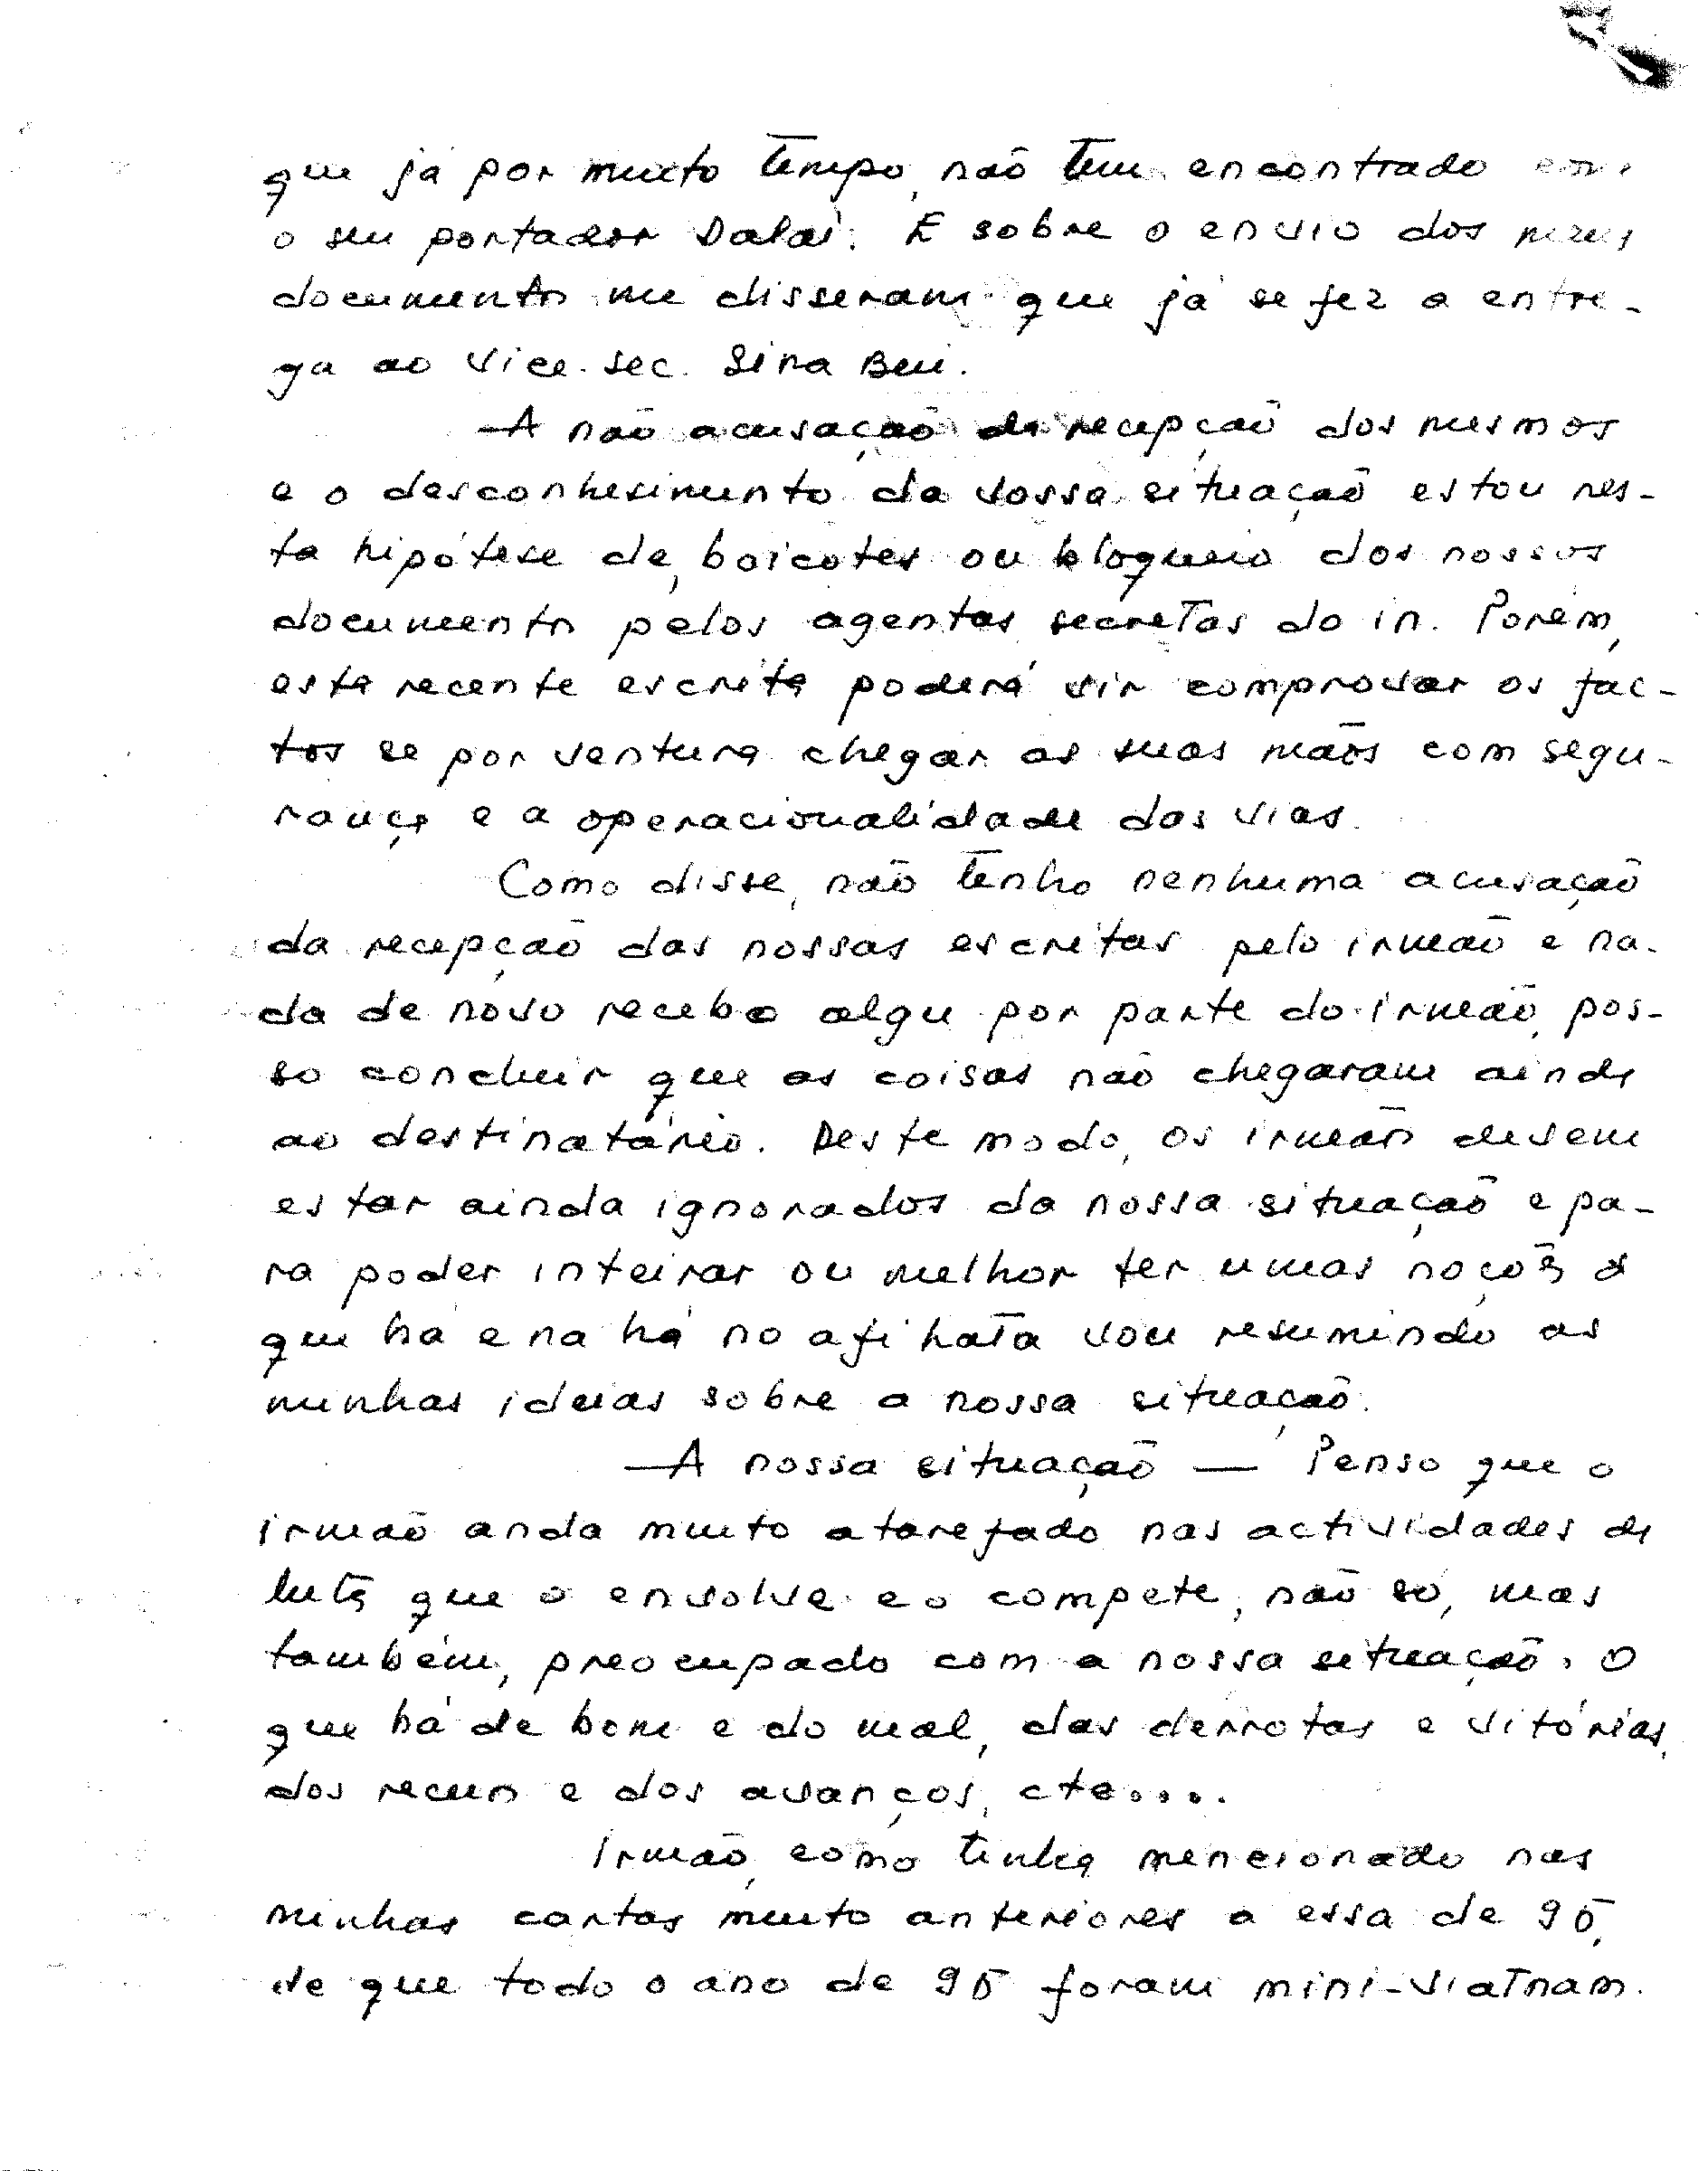 que já por muito tempo, não tem encontrado com
o seu portador Dalai. E sobre o envio dos meus
documentos me disseram que já se fez a entre-
ga ao Vice-sec. Sina Beu.
A não acusação da recepção dos mesmos
e o desconhesimento da vossa situação estou nes-
ta hipótese de, boicotes ou bloqueio dos nossos
documentos pelos agentes secretas do in. Porém,
esta recente escrita poderá vir comprovar os fac-
tos se por ventura chegar as suas mãos com segu-
rança e a operacionalidade das vias.
Como disse, não tenho nenhuma acusação
da recepção das nossas escritas pelo irmão e na-
da de novo recebo algu por parte do irmão, pos-
so concluir que as coisas não chegaram ainda
ao destinatário. Deste modo, os irmãos devem
estar ainda ignorados da nossa situação e pa-
ra poder inteirar ou melhor ter umas noções d
que há e na há no afi hata vou resumindo as
minhas ideias sobre a nossa situação.
— A nossa situação — Penso que o
irmão anda muito atarefado nas actividades da
luta que o envolve e o compete, não só, mas
também, preocupado com a nossa situação. O
que há de bom e do mal, das derrotas e vitórias,
dos recuos e dos avanços, cte....
Irmão, como tinha mencionado nas
minhas cartas muito anteriores a essa de 95,
de que todo o ano de 95 foram mini-Viatnam.